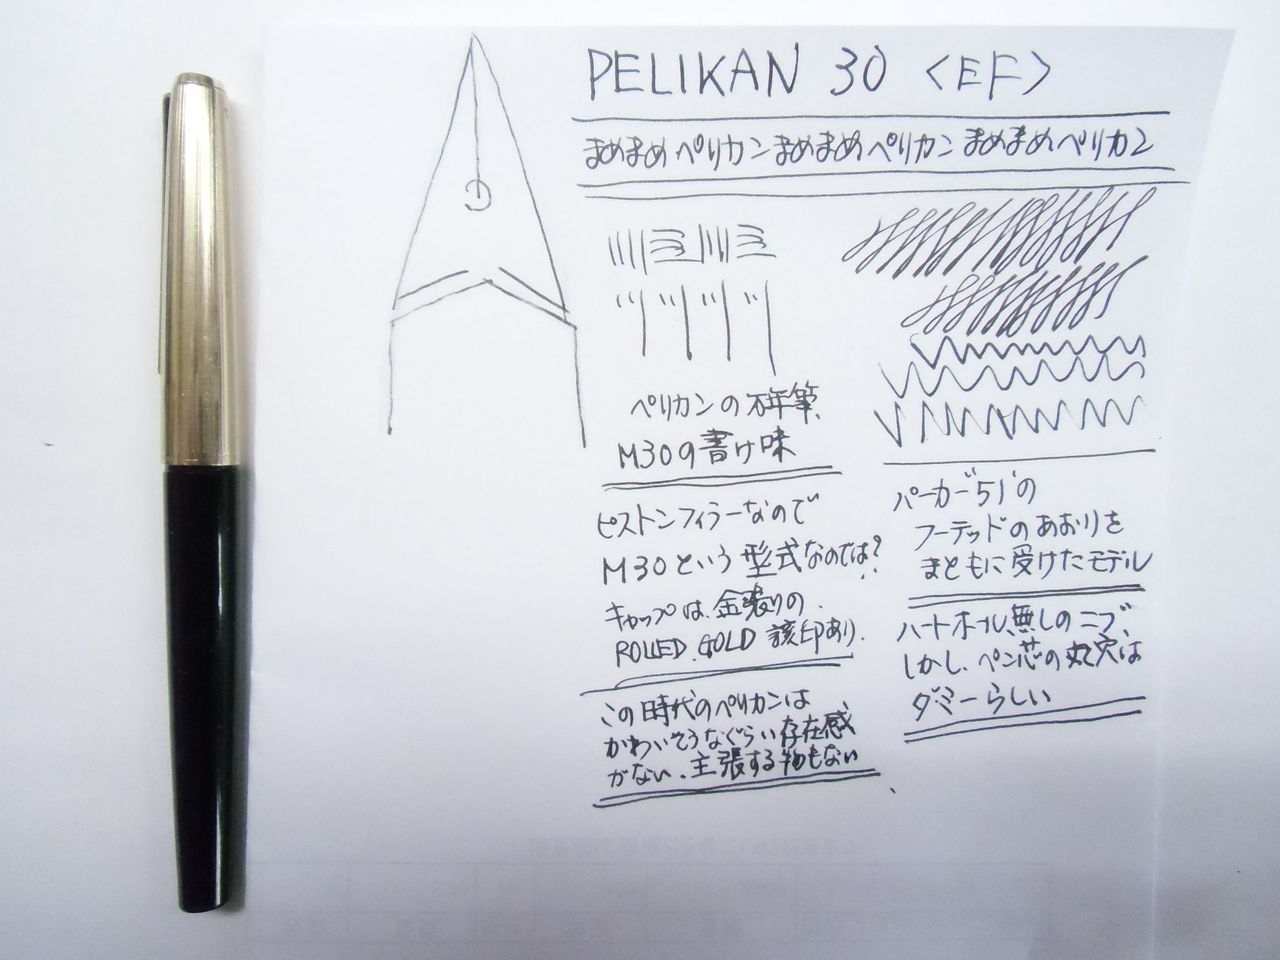 PELIKAN 30 〈EF〉
まめまめペリカンまめまめペリカンまめまめペリカン
ペリカンの万年筆、
M30の書け味
ピストンフィラーなので
M30という型式なのでは?
キャップは、金張りの、
ROLLED GOLD 該印あり.
この時代のペリカンは
かわいそうなぐらい存在感
がない、主張する物もない
パーカー51'の
フーテッドのあおりを
まともに受けたモデル
ハートホール無しのニブ、
しかし、ペン芯の丸穴は
ダミーらしい